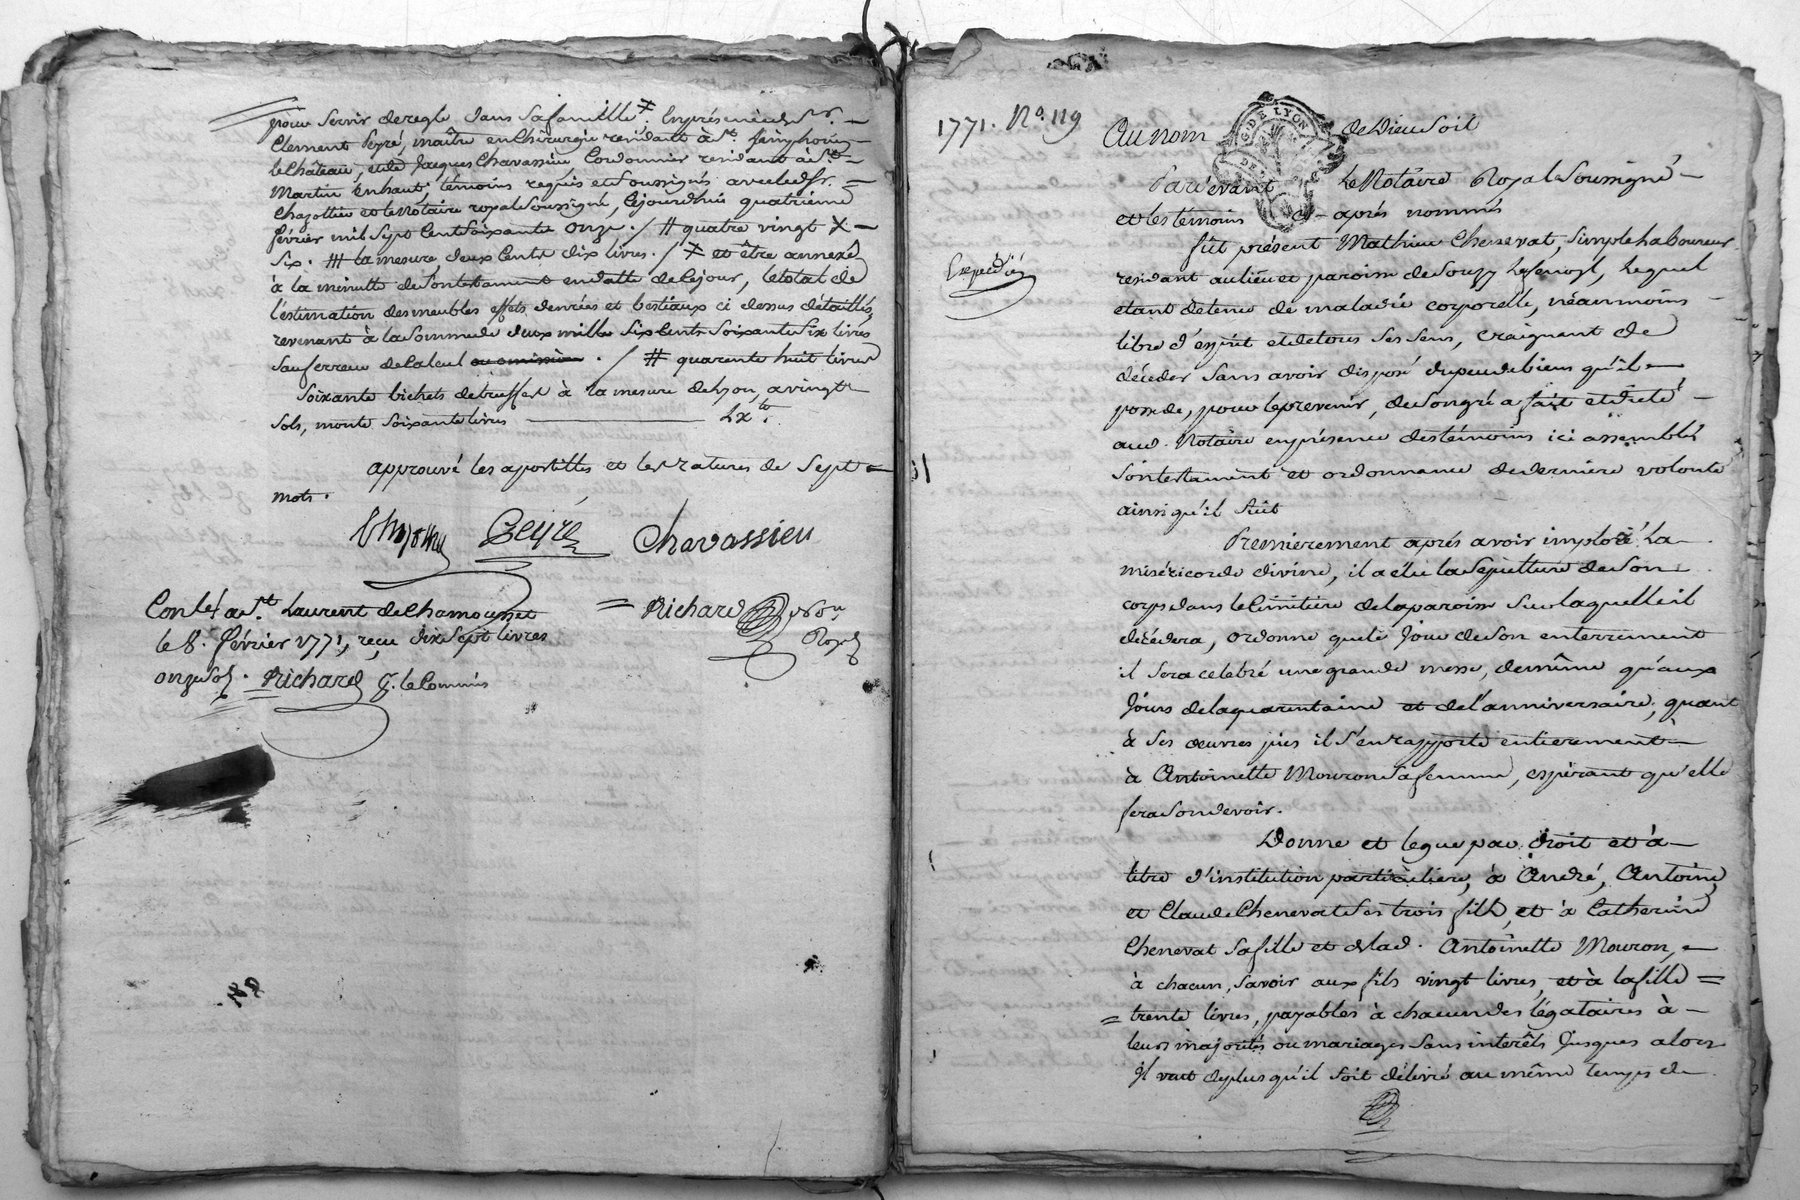 pour Servir de regle dans Sa famille ⚹. En présence de Sr. —
Clement Peyré, maître en Chirurgie residant à St. Simphorien
le Château, et de Jacques Chavassieu Cordonnier residant à St. —
Martin Enhaut, témoins requis et Soussignés avec led. Sr. —
Chazottier et le Notaire royal Soussigné, Cejourdhui quatrieme
février mil Sept Cent Soixante onze ./ # quatre vingt X —
Six. ## la mesure deux Cents dix livres. / ⚹ et être annexé
à la minutte de Son testament en datte de Cejour, l'etat de
l'estimation des meubles effets denrées et bestiaux ci dessus détaillés,
revenant à la Somme de deux mille Six Cents Soixante Six livres
Sauf erreur de Calcul ou omission . / # quarente huit livres
Soixante bichets de truffes à la mesure de Lyon, a vingt
Sols, monte Soixante livres ——— Lx tt.
approuvé les apostilles et les ratures de Sept =
mots .
Peyré Chavassieu
Conlé a St. Laurent de Chamousset
le 8. février 1771, reçu dix Sept livres
onze Sols . Richard p. le Commis
= Richard Nore
Royal
1771. No. 119
Au nom de Dieu Soit
G. DE LYON
Pardevant Le Notaire Royal Soussigné —
et les témoins ci-après nommés
fût présent Mathieu Chenevat, Simple Laboureur
residant au lieu et paroisse de Souzy L'argentiere, Lequel
Expedié
etant détenu de maladie corporelle, néanmoins —
libre d'esprit et de tous Ses Sens, craignant de
décéder Sans avoir disposé du peu de biens qu'il —
possede, pour le prevenir, de Son gré a fait et dicté —
aud. Notaire en présence des témoins ici assemblés
Son testament et ordonnance de derniere volonté
ainsi qu'il Suit
Premierement après avoir imploré La —
miséricorde divine, il a élu la Sépulture de Son
corps dans le Cimitiere de la paroisse Sur laquelle il
décédera, ordonne que le Jour de Son enterrement
il Sera celebré une grande messe, de même qu'aux
Jours de la quarentaine et de l'anniversaire, quant
à Ses oeuvres pies il S'en rapporte entierement —
à Antoinette Mouron Sa femme, espérant qu'elle
fera Son devoir.
Donne et legue par droit et à —
titre d'institution particuliere, à André, Antoine,
et Claude Chenevat Ses trois fils, et à Catherine
Chenevat Sa fille et de lad. Antoinette Mouron, —
à chacun, Savoir aux fils vingt livres, et à la fille =
= trente livres, payables à chacun des légataires à —
leurs majorités ou mariages Sans intérêts Jusques alors
Il veut de plus qu'il Soit délivré au même temps de